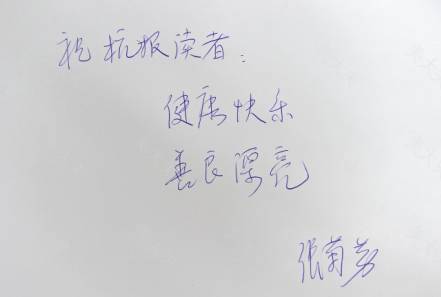 祝杭报读者：
健康快乐
善良漂亮
张菊芳